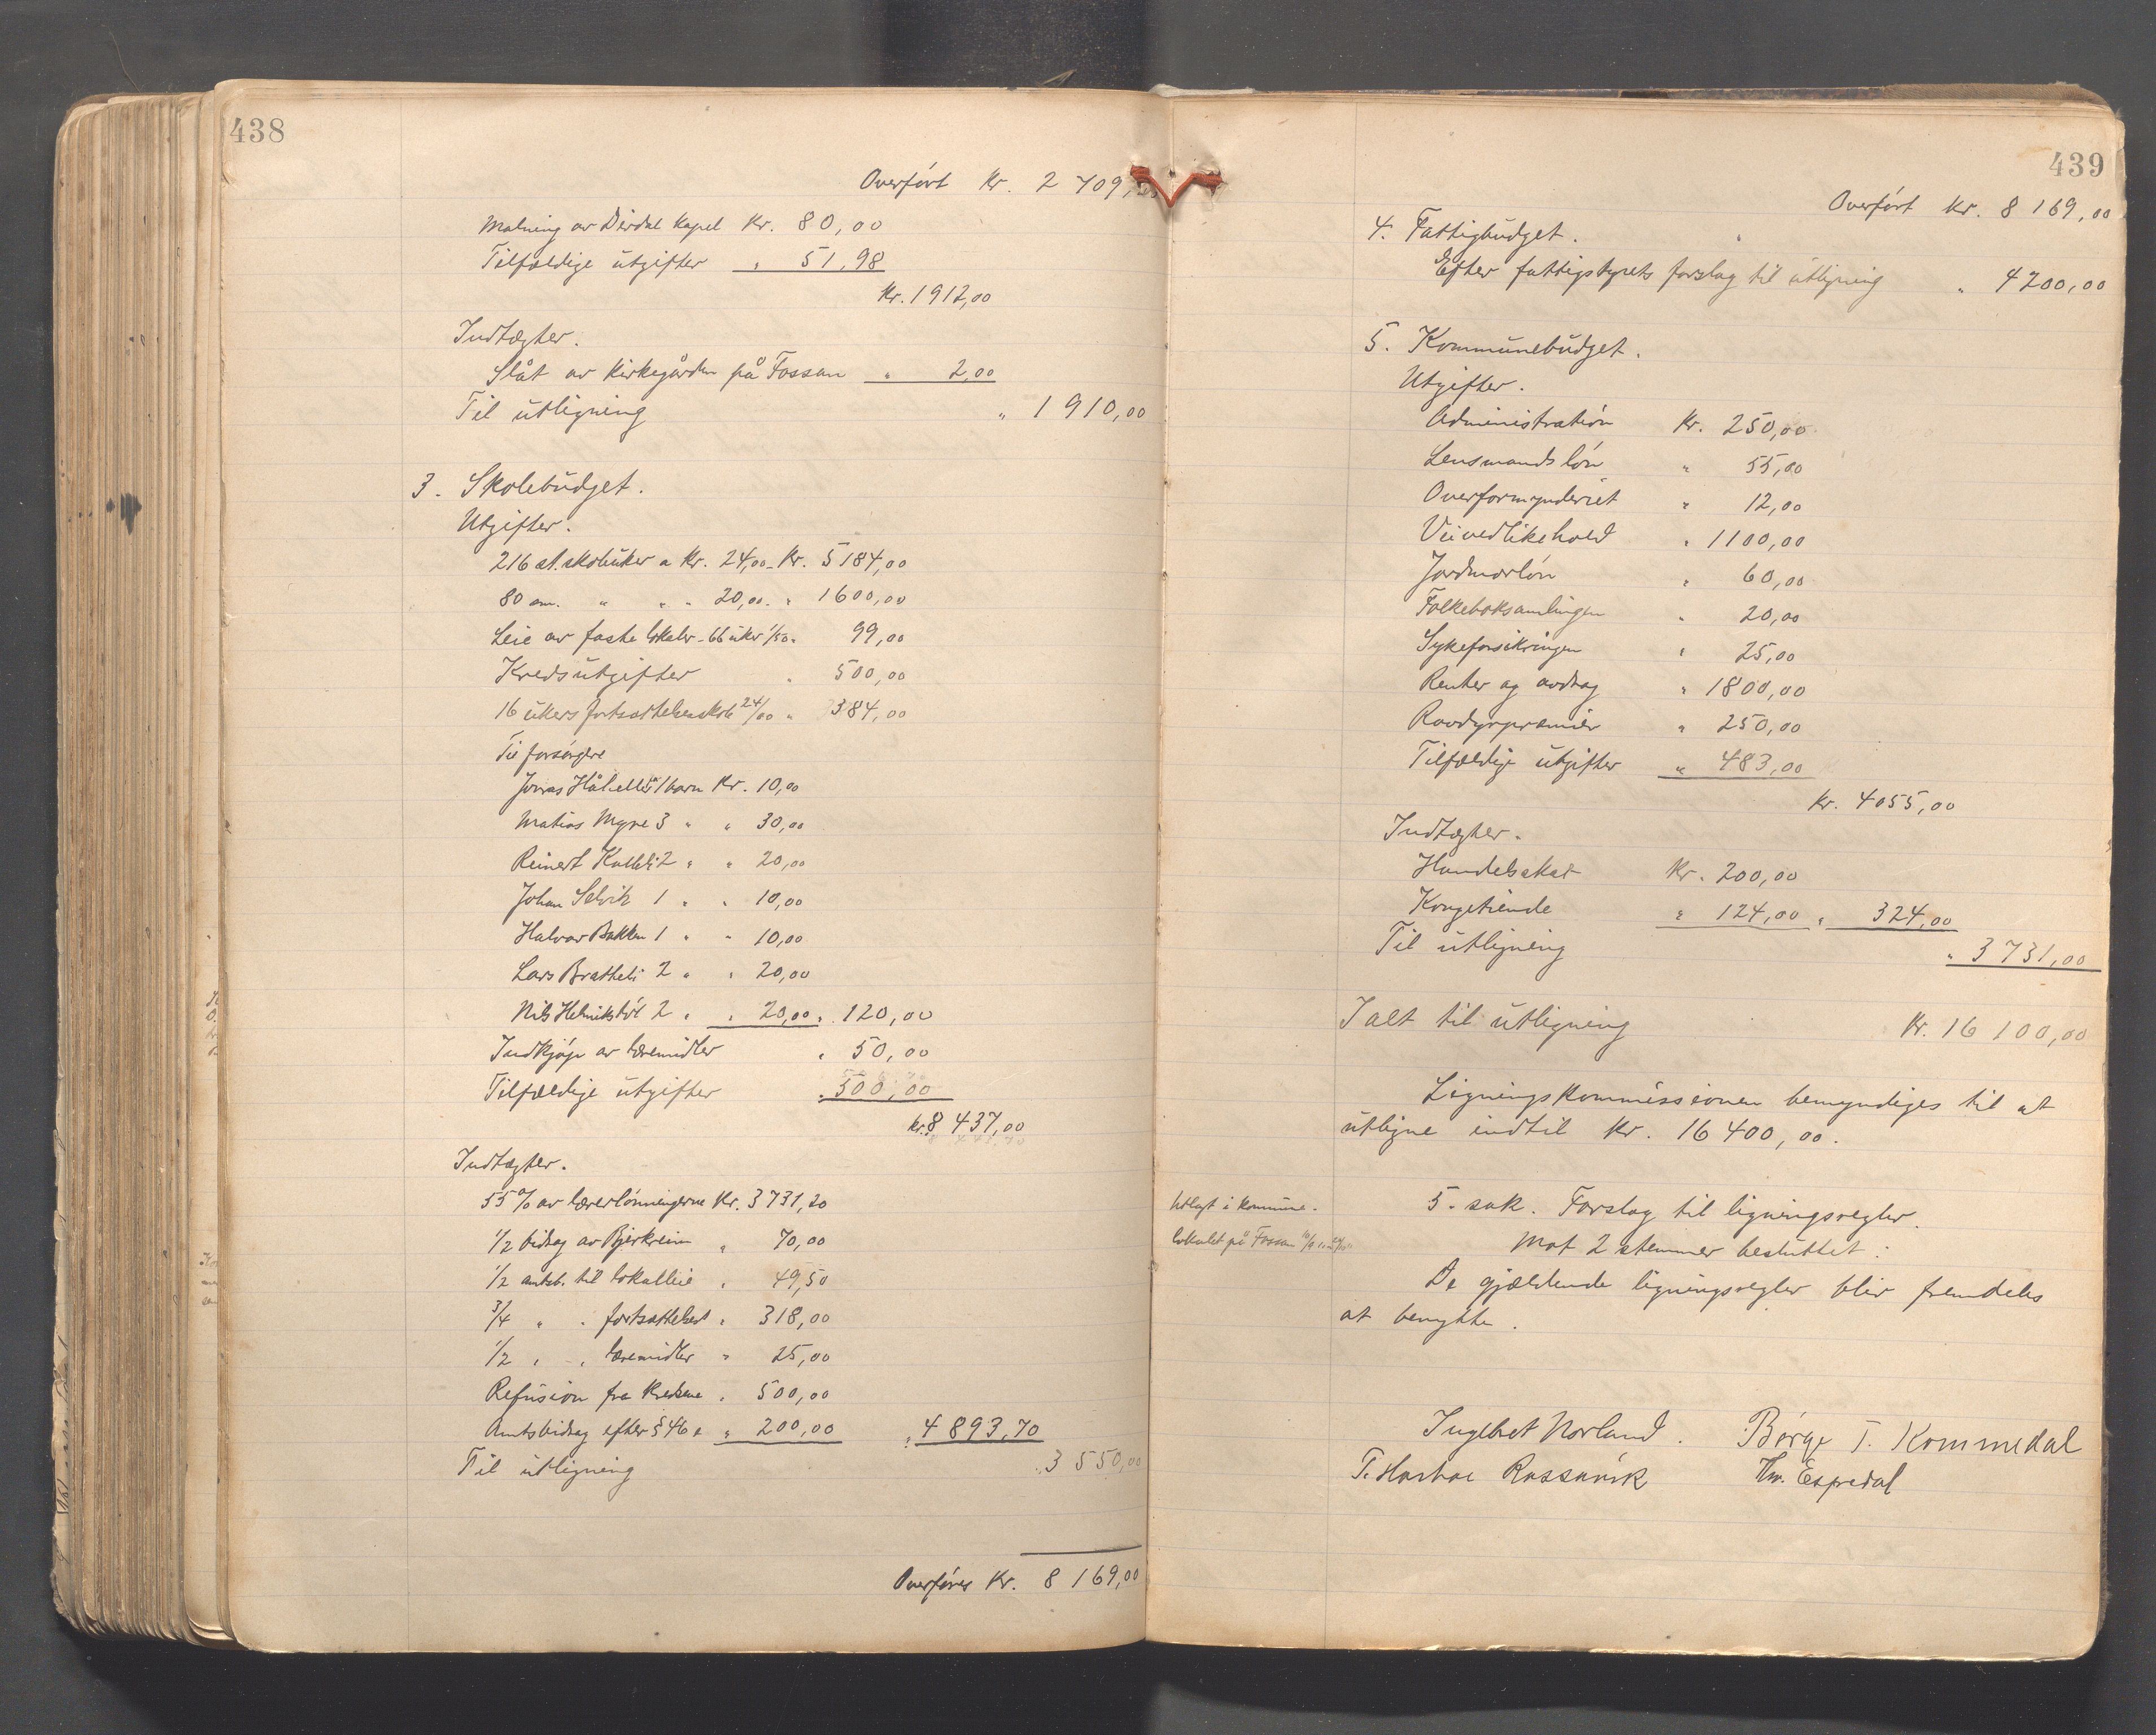 438
Overført Kr. 2 709,
Malning av Dirdal kapel Kr. 80,00
Tilfældige utgifter " 51,98
Kr. 1912,00
Indtægter.
Slåt av kirkegården på Fossan " 2,00
Til utligning " 1 910,00
3. Skolebudget.
Utgifter.
216 st. skoleuker a Kr. 24,00 - Kr. 5 184,00
80 om. " " " 20,00 - " 1600,00
Leie av faste lokaler - 66 uker 1/50 " 99,00
Kredsutgifter " 500,00
16 ukers fortsættelsesskole 24/00 " 384,00
Til forsørgere
Jonas Hålelli 1 barn Kr. 10,00
Matias Myre 3 " " 30,00
Reinert 2 " " 20,00
Johan Selvik 1 " " 10,00
Halvor Bakken 1 " " 10,00
Lars Bratteli 2 " " 20,00
Nils Helmikstøl 2 " " 20,00 " 120,00
Indkjøp av læremidler " 50,00
Tilfældige utgifter " 500,00
Kr. 8 437,00
Indtægter.
55 % av lærerlønningerne Kr. 3 731,20
1/2 bidrag av Bjerkreim " 70,00
1/2 amtsb. til lokalleie " 49,50
3/4 " " fortsættelsessk " 318,00
1/2 " " læremidler " 25,00
Refusion fra kredsene " 500,00
Amtsbidrag efter § 46 " 200,00 " 4 893,70
Til utligning " 3 550,00
Overføres Kr. 8 169,00
439
Overført Kr. 8 169,00
4. Fattigbudget.
Efter fattigstyrets forslag til utligning " 4200,00
5. Kommunebudget.
Utgifter.
Administration Kr. 250,00
Lensmandsløn " 55,00
Overformynderiet " 12,00
Veivedlikehold " 1100,00
Jordmorløn " 60,00
Folkeboksamlingen " 20,00
Sykeforsikringen " 25,00
Renter og avdrag " 1800,00
Rovdyrpræmier " 250,00
Tilfældige utgifter " 483,00
Kr. 4055,00
Indtægter.
Handelsskat Kr. 200,00
Kongetiende " 124,00 " 324,00
Til utligning " 3 731,00
Ialt til utligning Kr. 16 100,00
Ligningskommissionen bemyndiges til at
utligne indtil Kr. 16 400,00.
Utlagt i kommune-
lokalet på Fossan
5. sak. Forslag til ligningsregler.
Mot 2 stemmer besluttet:
De gjældende ligningsregler blir fremdeles
at benytte.
Ingebret Norland. Børge T. Kommedal
T. Harboe Rossavik Hm. Espedal